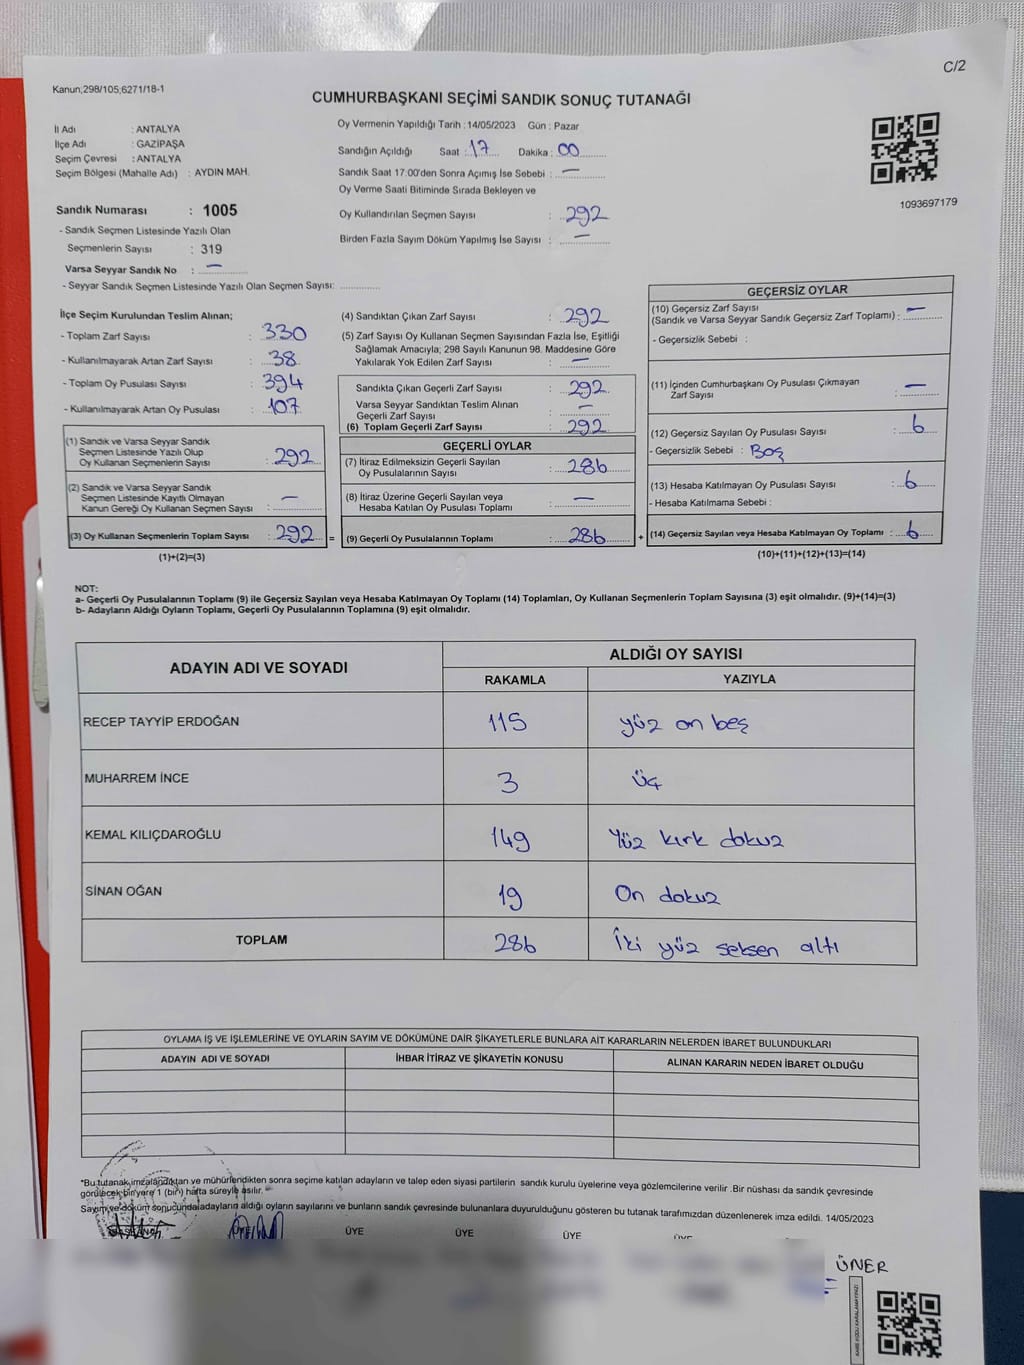 C/2
Kanun;298/105;6271/18-1
CUMHURBAŞKANI SEÇİMİ SANDIK SONUÇ TUTANAĞI
İl Adı : ANTALYA
İlçe Adı : GAZİPAŞA
Seçim Çevresi : ANTALYA
Seçim Bölgesi (Mahalle Adı) : AYDIN MAH.
Sandık Numarası : 1005
- Sandık Seçmen Listesinde Yazılı Olan
Seçmenlerin Sayısı : 319
Varsa Seyyar Sandık No : —
- Seyyar Sandık Seçmen Listesinde Yazılı Olan Seçmen Sayısı: ..............
Oy Vermenin Yapıldığı Tarih : 14/05/2023 Gün : Pazar
Sandığın Açıldığı Saat : 17 Dakika : 00
Sandık Saat 17:00'den Sonra Açımış İse Sebebi : —
Oy Verme Saati Bitiminde Sırada Bekleyen ve
Oy Kullandırılan Seçmen Sayısı : 292
Birden Fazla Sayım Döküm Yapılmış İse Sayısı : —
1093697179
İlçe Seçim Kurulundan Teslim Alınan;
- Toplam Zarf Sayısı : 330
- Kullanılmayarak Artan Zarf Sayısı : 38
- Toplam Oy Pusulası Sayısı : 394
- Kullanılmayarak Artan Oy Pusulası : 107
(1) Sandık ve Varsa Seyyar Sandık
Seçmen Listesinde Yazılı Olup
Oy Kullanan Seçmenlerin Sayısı : 292
(2) Sandık ve Varsa Seyyar Sandık
Seçmen Listesinde Kayıtlı Olmayan
Kanun Gereği Oy Kullanan Seçmen Sayısı : —
(3) Oy Kullanan Seçmenlerin Toplam Sayısı : 292 =
(1)+(2)=(3)
(4) Sandıktan Çıkan Zarf Sayısı : 292
(5) Zarf Sayısı Oy Kullanan Seçmen Sayısından Fazla İse, Eşitliği
Sağlamak Amacıyla; 298 Sayılı Kanunun 98. Maddesine Göre
Yakılarak Yok Edilen Zarf Sayısı : —
Sandıkta Çıkan Geçerli Zarf Sayısı : 292
Varsa Seyyar Sandıktan Teslim Alınan
Geçerli Zarf Sayısı : —
(6) Toplam Geçerli Zarf Sayısı : 292
GEÇERLİ OYLAR
(7) İtiraz Edilmeksizin Geçerli Sayılan
Oy Pusulalarının Sayısı : 286
(8) İtiraz Üzerine Geçerli Sayılan veya
Hesaba Katılan Oy Pusulası Toplamı : —
(9) Geçerli Oy Pusulalarının Toplamı : 286 +
GEÇERSİZ OYLAR
(10) Geçersiz Zarf Sayısı
(Sandık ve Varsa Seyyar Sandık Geçersiz Zarf Toplamı) : —
- Geçersizlik Sebebi :
(11) İçinden Cumhurbaşkanı Oy Pusulası Çıkmayan
Zarf Sayısı : —
(12) Geçersiz Sayılan Oy Pusulası Sayısı : 6
- Geçersizlik Sebebi : Boş
(13) Hesaba Katılmayan Oy Pusulası Sayısı : 6
- Hesaba Katılmama Sebebi :
(14) Geçersiz Sayılan veya Hesaba Katılmayan Oy Toplamı : 6
(10)+(11)+(12)+(13)=(14)
NOT:
a- Geçerli Oy Pusulalarının Toplamı (9) ile Geçersiz Sayılan veya Hesaba Katılmayan Oy Toplamı (14) Toplamları, Oy Kullanan Seçmenlerin Toplam Sayısına (3) eşit olmalıdır. (9)+(14)=(3)
b- Adayların Aldığı Oyların Toplamı, Geçerli Oy Pusulalarının Toplamına (9) eşit olmalıdır.
ADAYIN ADI VE SOYADI ALDIĞI OY SAYISI
RAKAMLA YAZIYLA
RECEP TAYYİP ERDOĞAN 115 yüz on beş
MUHARREM İNCE 3 Üç
KEMAL KILIÇDAROĞLU 149 Yüz kırk dokuz
SİNAN OĞAN 19 On dokuz
TOPLAM 286 İki yüz seksen altı
OYLAMA İŞ VE İŞLEMLERİNE VE OYLARIN SAYIM VE DÖKÜMÜNE DAİR ŞİKAYETLERLE BUNLARA AİT KARARLARIN NELERDEN İBARET BULUNDUKLARI
ADAYIN ADI VE SOYADI İHBAR İTİRAZ VE ŞİKAYETİN KONUSU ALINAN KARARIN NEDEN İBARET OLDUĞU
*Bu tutanak imzalandıktan ve mühürlendikten sonra seçime katılan adayların ve talep eden siyasi partilerin sandık kurulu üyelerine veya gözlemcilerine verilir .Bir nüshası da sandık çevresinde
görülecek bir yere 1 (bir) hafta süreyle asılır.
Sayım ve döküm sonucunda adayların aldığı oyların sayılarını ve bunların sandık çevresinde bulunanlara duyurulduğunu gösteren bu tutanak tarafımızdan düzenlenerek imza edildi. 14/05/2023
BAŞKAN ÜYE ÜYE ÜYE ÜYE ÜYE
ÜNER